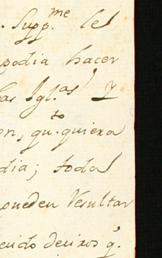 Supp.me les
podia hacer
las Igl.as y
on, qu.to quiera
dia; todas
pueden resultar
decido deciros q.